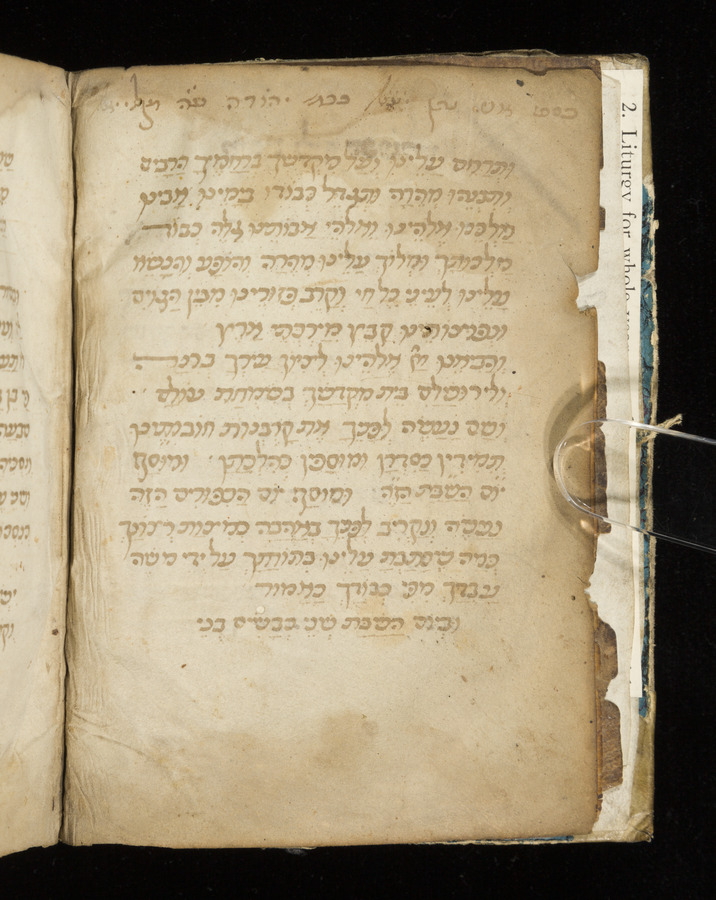 ותרחם עלינו ועל מקדשך ברחמיך הרבים
ותבנהו מהרה ותגדל כבודו בימינו אבינו
מלכנו אלהינו ואלהי אבותינו גלה כבוד
מלכותך עלינו מהרה והופע והנשא
עלינו לעיני כל חי וקרב פזורינו מבין הגוים
ונפוצותינו קבץ מירכתי ארץ
והביאנו אלהינו לציון עירך ברנה
ולירושלם בית מקדשך בשמחת עולם
ושם נעשה לפניך את קרבנות חובותינו
תמידין כסדרן ומוספין כהלכתן ומוסף
יום השבת הזה ומוסף יום הכפורים הזה
נעשה ונקריב לפניך באהבה כמצות רצונך
כמה שכתבת עלינו בתורתך על ידי משה
עבדך מפי כבודך כאמור
וביום השבת שני כבשים בני
2. Liturgy for whole